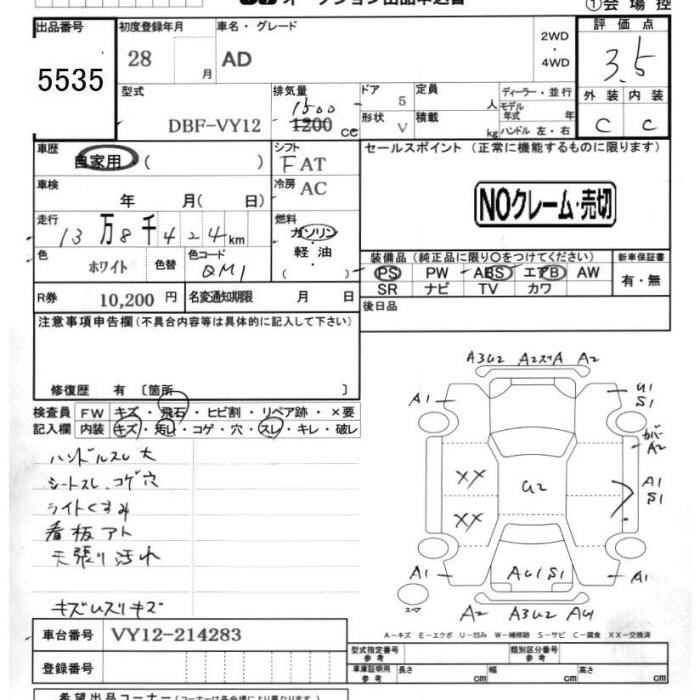 オークション出品申込書
①会場控
出品番号
5535
初度登録年月
28 月
車名・グレード
AD
2WD
・
4WD
評価点
3.5
外装 内装
C C
型式
DBF-VY12
排気量
1500
1200 cc
ドア 5
定員 人
形状 V
積載 kg
ディーラー・並行
モデル年式 年
ハンドル 左・右
車歴
自家用( )
シフト
FAT
セールスポイント(正常に機能するものに限ります)
NOクレーム・売切
車検
年 月( 日)
冷房
AC
走行
13万8千424km
燃料
ガソリン
軽油
( )
色
ホワイト
色替
色コード
QM1
装備品(純正品に限り○をつけてください)
PS PW ABS エアB AW
SR ナビ TV カワ
新車保証書
有・無
R券 10,200円
名変通知期限 月 日
後日品
注意事項申告欄(不具合内容等は具体的に記入して下さい)
修復歴 有 〔箇所 〕
検査員 FW キズ・飛石・ヒビ割・リペア跡・×要
記入欄 内装 キズ・汚レ・コゲ・穴・スレ・キレ・破レ
ハンドルスレ大
シートスレ、コゲ穴
ライトくすみ
看板アト
天張り汚れ
キズUスリキズ
A3U2 A2ズA A2
A1 U1
S1
カバー
A2
XX U2 A1
S1
XX
A1 AU1S1 A1
スペア
A2 A3U2 AU
A-キズ E-エクボ U-凹み W-補修跡 S-サビ C-腐食 XX-交換済
車台番号 VY12-214283
登録番号
型式指定番号
参考
類別区分番号
参考
車庫証明用
参考
長さ cm 幅 cm 高さ cm
希望出品コーナー(コーナーは各会場により異なります)